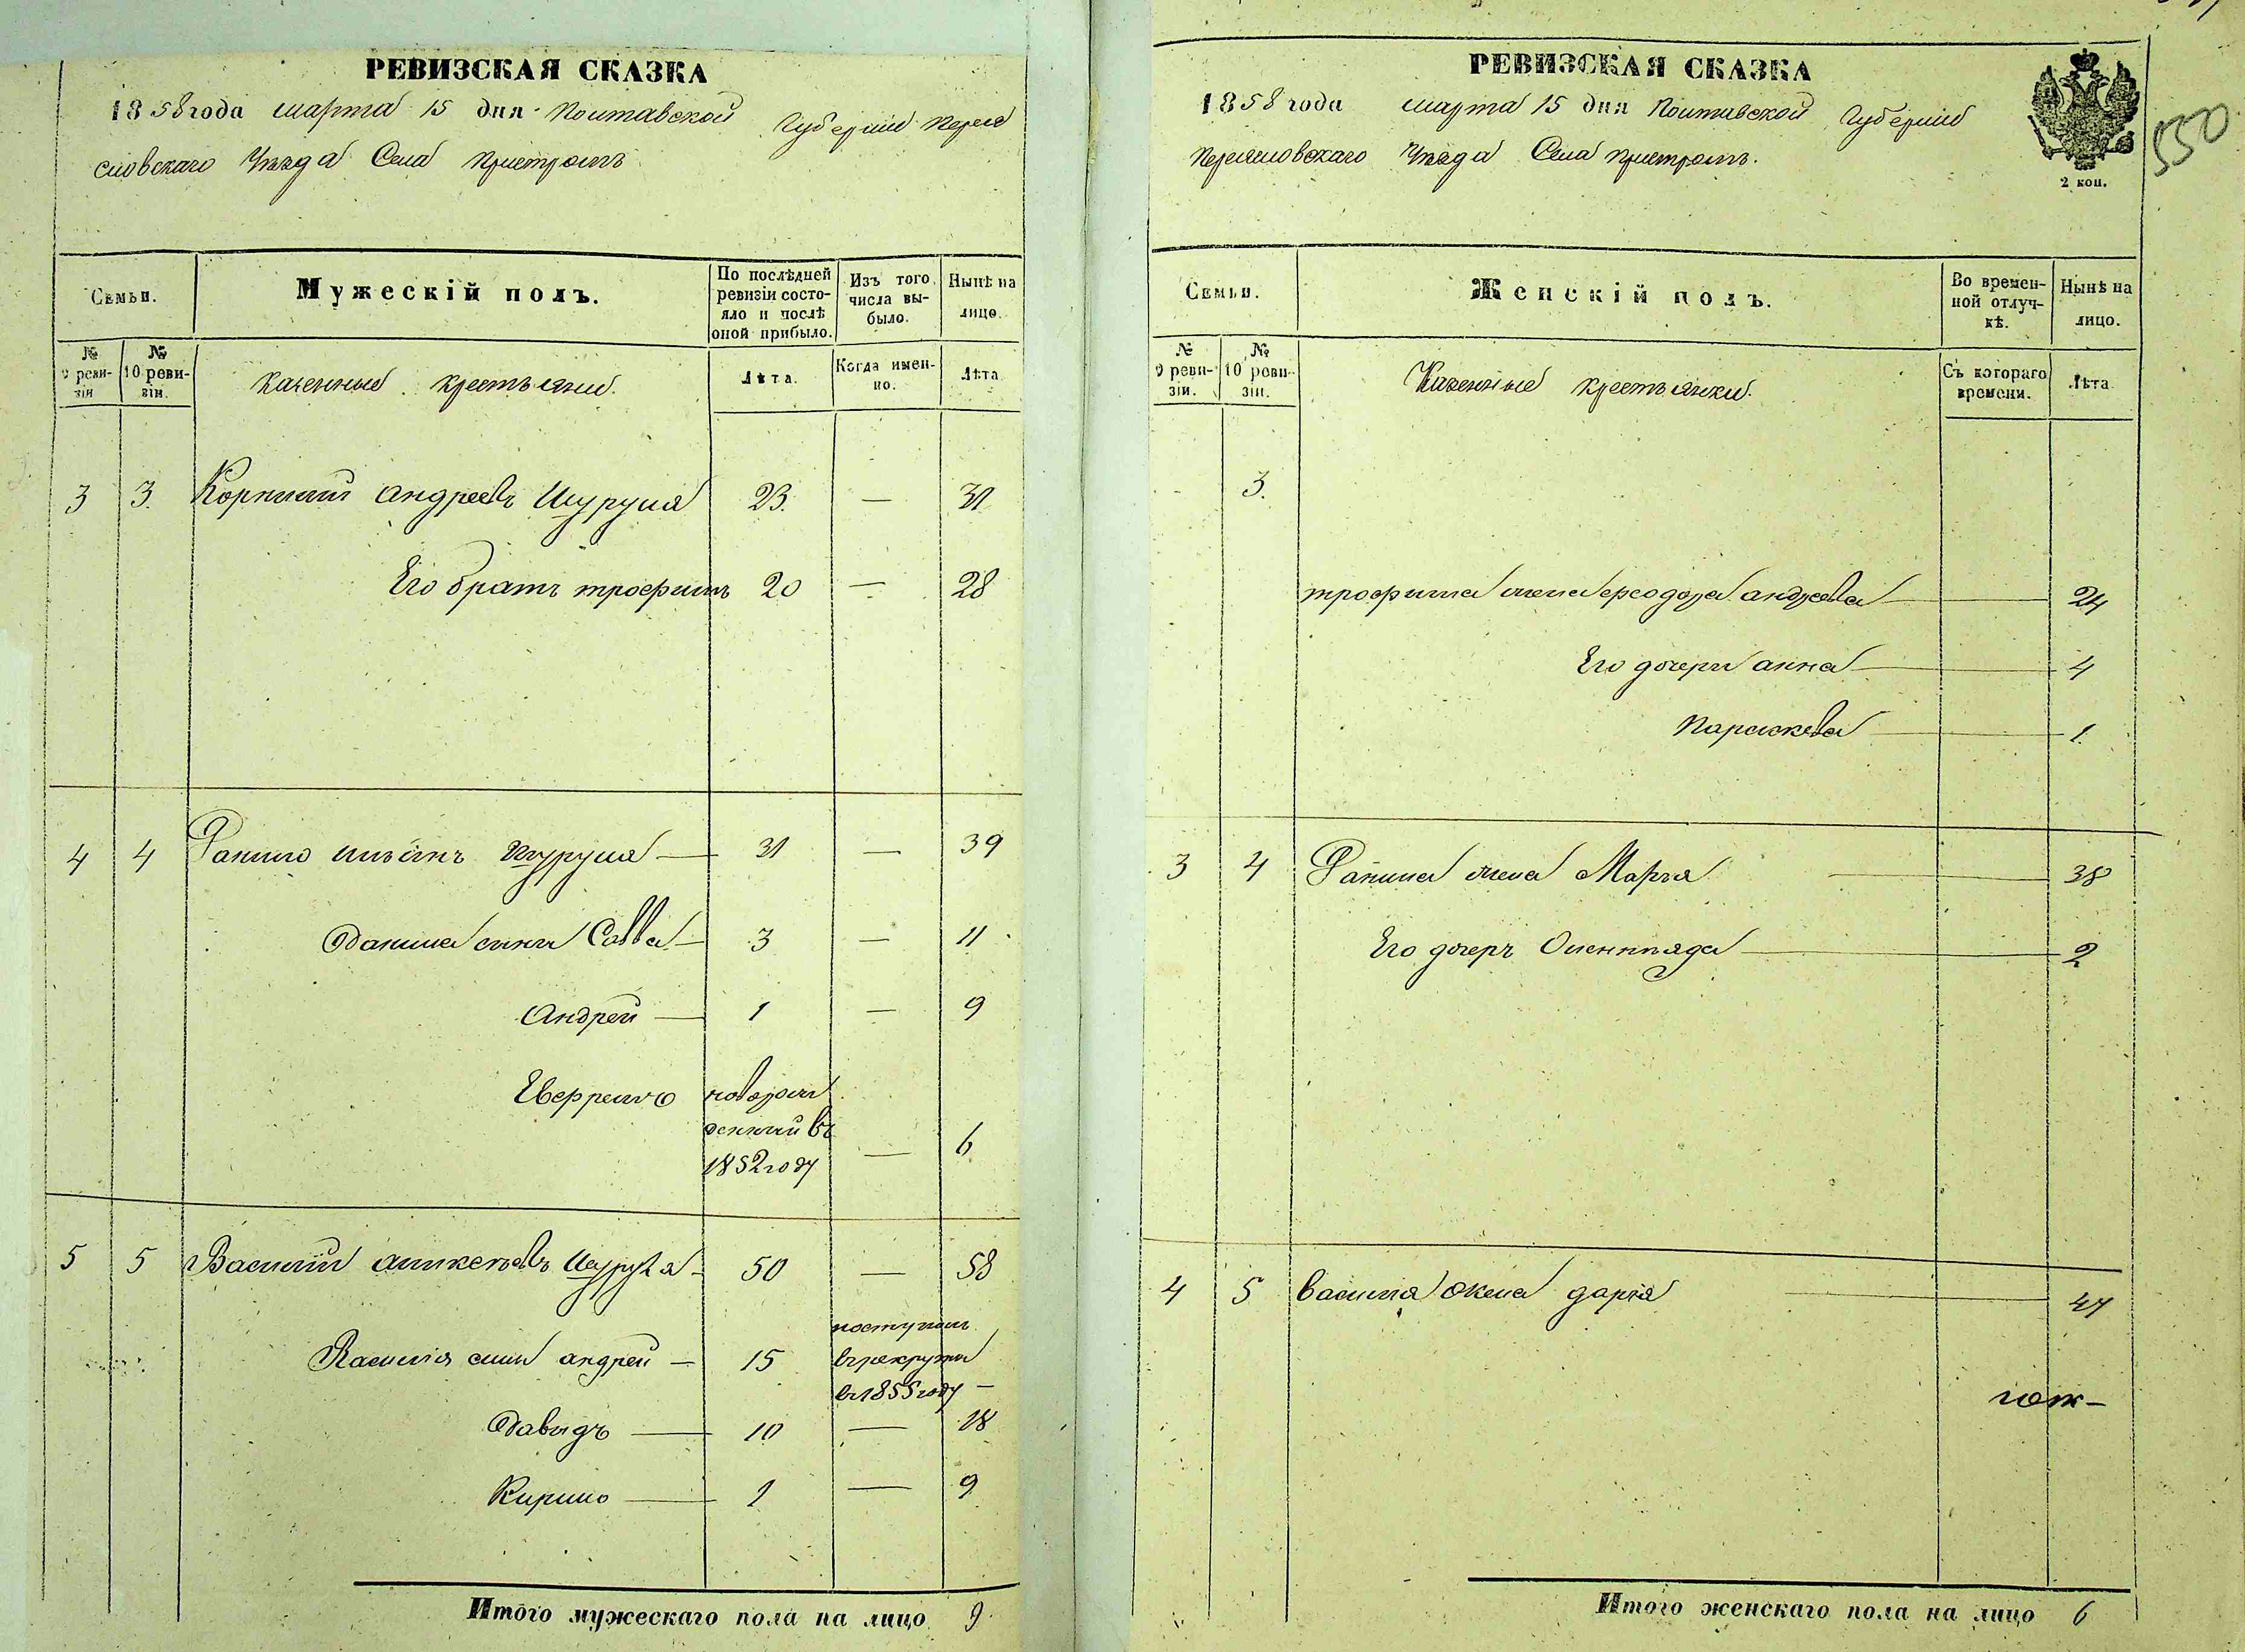 РЕВИЗСКАЯ СКАЗКА
1858 года марта 15 дня Полтавской Губернии Перея
словскаго Уѣзда Села Пристромъ
Семьи.
Мужескій полъ.
По послѣдней ревизіи состояло и послѣ оной прибыло.
Изъ того числа выбыло.
Нынѣ на лицо.
№ 9 ревизіи
№ 10 ревизіи.
Казенные крестьяни
Лѣта.
Когда именно.
Лѣта
3 3. Корнилій андреевъ Шурупа 23. — 31
Его братъ трофимъ 20 — 28
4 4 Данило Шурупа — 31 — 39
Данила сыни Савва — 3 — 11
Андрей — 1 — 9
новорож
денный въ
1852 году — 6
5 5 Василій Шурупа — 50 — 58
поступилъ
Василія сыни андрей — 15 въ рекруты
въ 1855 году —
Давыдъ — 10 — 18
Кирило — 1 — 9
Итого мужескаго пола на лицо 9.
РЕВИЗСКАЯ СКАЗКА
1858 года марта 15 дня Полтавской Губернии
Переясловскаго Уѣзда Села Пристромъ.
2 коп.
550
Семьи.
Женскій полъ.
Во временной отлучкѣ.
Нынѣ на лицо.
№ 9 ревизіи.
№ 10 ревизіи.
Казенные крестьянки.
Съ котораго времени.
Лѣта
- 3.
трофима жена феодора андреева — 24
Его дочери анна — 4
Параскева — 1.
3 4 Данила жена Марья — 38
Его дочерь — 2
4 5 василія жена дарія — 47
Итого женскаго пола на лицо 6